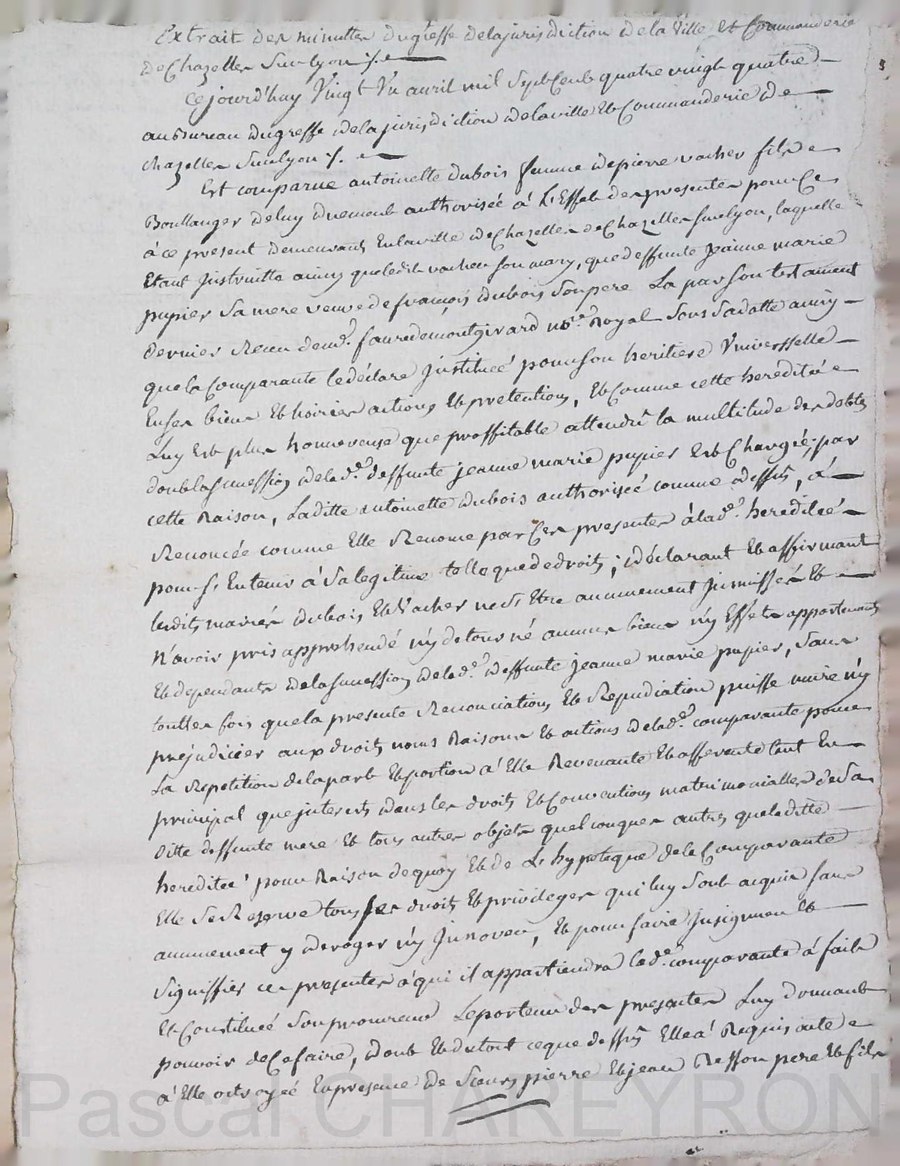 Extrait des minuttes du greffe de la jurisdiction de la Ville et Commanderie
De Chazelles Sur lyon ./.
Ce jourd'huy Vingt Un avril mil Sept Cent quatre vingt quatre
au Bureau du greffe de la jurisdiction de la ville et Commanderie de
chazelles Sur lyon ./.
Est comparue antoinette dubois femme de pierre vacher fils
Boullanger de luy duement authorisée à L'Effet des presentes pour Ce
à ce present demeurants En la ville de Chazelles de Chazelles Sur lyon, laquelle
Etant Instruitte ainsy que ledit vacher Son mary, que deffunte Jeanne marie
pupier Sa mere veuve de françois dubois Son pere La par Son testament
Dernier Receu de me. faure de montgirard nore. Royal Sous Sa datte ainsy
que la Comparante le déclare Instituée pour Son heritiere Universselle
En Ses biens et hoiries actions et pretentions, Et Comme cette heredité
Luy Est plus honnoreuse que proffitable attendu la multitude des dettes
dont la Sucession de lade. deffunte jeanne marie pupier Est Chargée; par
cette Raison, Laditte antoinette dubois authorisée comme dessus, à
Renoncée comme Elle Renonce par Ces presentes à lade. heredité
pour S'En tenir à Sa legitime telle que de droits; déclarant Et affirmant
lesdits mariés dubois Et Vacher ne S'Etre aucunement Immissés Et
N'avoir pris apprehendé n'y detourné aucuns biens n'y Effets appartenants
Et dependants de la Sucession de lade. deffunte jeanne marie pupier, Sans
touttes fois que la presente Renonciation Et Repudiation puisse nuire n'y
prejudicier aux droits noms Raisons Et actions de lade. comparante pour
La Repetition de la part Et portion à Elle Revenante Et afferente tant En
principal que interets dans les droits Et Conventions matrimonialles de Sa
ditte deffunte mere Et tous autres objets quelconques autres que laditte
heredité pour Raison de quoy Et de L'hypoteque de la Comparante
Elle Se Reserve tous Ses droits Et privileges qui luy Sont acquis Sans
aucunement y deroger n'y Innover, Et pour faire Insignuer Et
Signiffier ces presentes à qui il appartiendra lade. comparante à fait
Et Constitué Son procureur Le porteur des presentes Luy donnant
pouvoir de Ce faire, dont Et du tout ce que dessus Elle a Requis acte
à Elle octroyée En presence de Sieurs pierre Et jean Resson pere Et fils
Pascal CHAREYRON